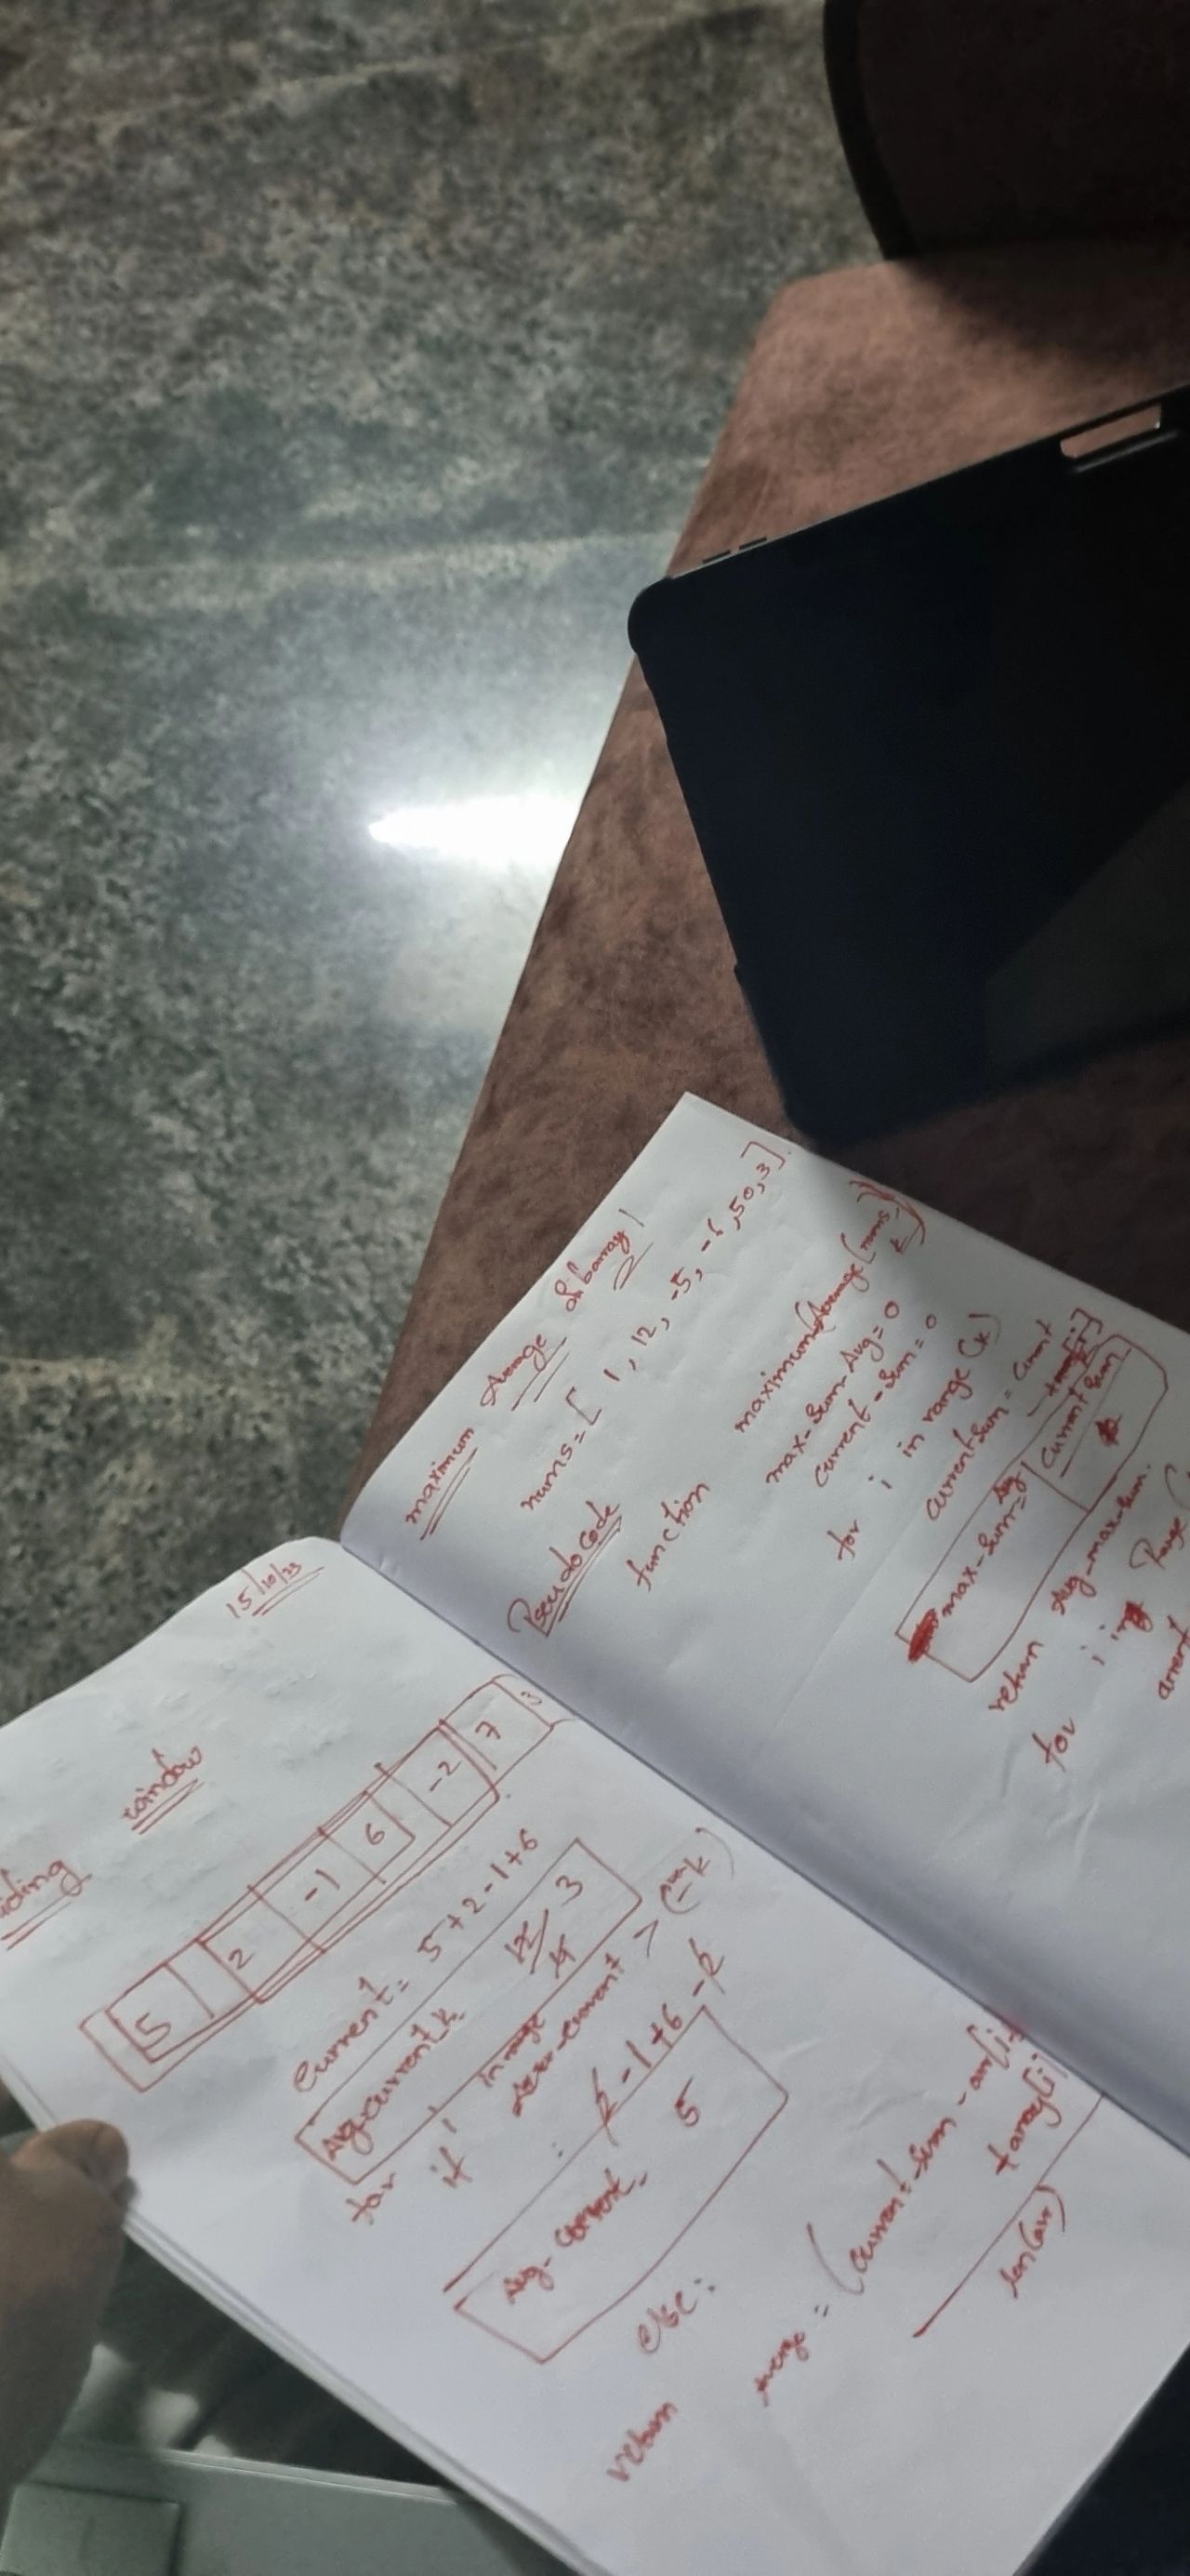 15/10/23
window
5 2 -1 6 -2 7 3
Current = 5+2-1+6
Avg-current k 12/4 3
for i in range
if
-1+6
Avg-current. 5
else:
return average = (current-sum - arr[i-
+ array[i]
len(arr)
maximum Average Subarray 1
nums = [ 1, 12, -5, -6, 50, 3].
Pseudocode
function maximum Average (nums, k)
max-Sum-Avg = 0
current-Sum = 0
for i in range (k)
currentSum = Current
+ array[i]
max-Sum = Avg current sum
return Avg-max-sum.
for i in Range (